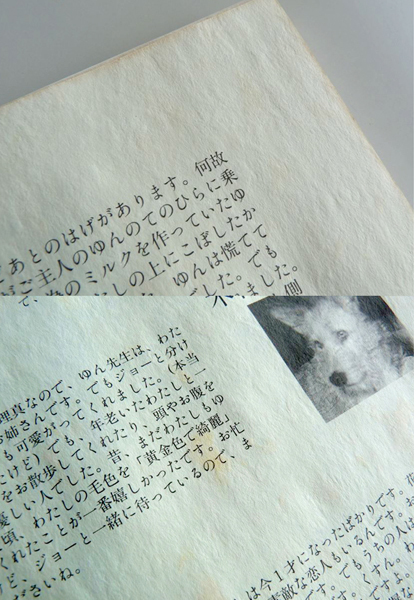 あとのはげがあります。何故
ご主人のゆんのてのひらに乗
のミルクを作っていたゆ
しの上にこぼしたか
ゆんは慌てて
した。でも
ました。
側
理真なので、ゆん先生は、わた
お姉さんです。でもジョーと分け
も可愛がってくれました。(本当
たけど)でも、年老いたわたしと一
をお散歩してくれたり、頭やお腹を
優しい人でした。昔、まだわたしもゆ
頃、わたしの毛色を「黄金色で綺麗」
くれたことが一番嬉しかったです。お忙
ど、ジョーと一緒に待っているので、ま
ださいね。
は今1才になったばかりです。
素敵な恋人もいるんです。お
です。でもうちの人
す。くすん。